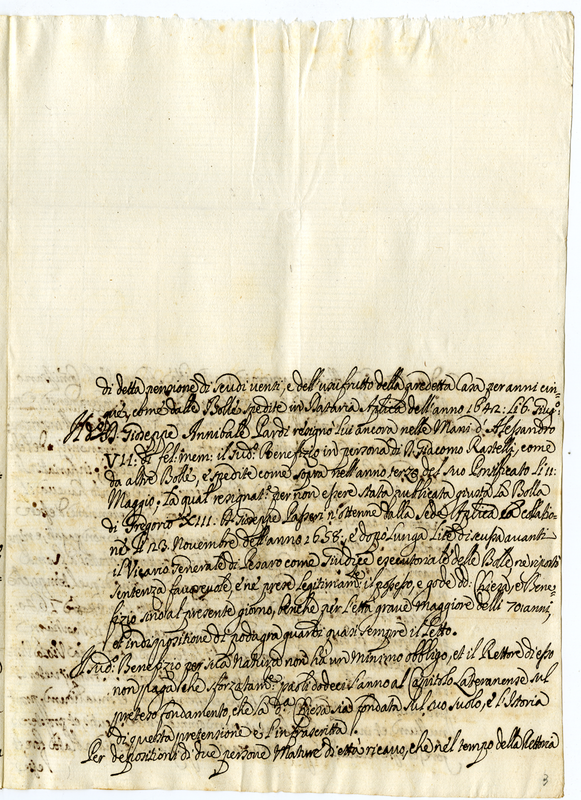 di detta pensione di scudi venti, e dell'usufrutto della predetta Casa per anni cin=
que, come dalle Bolle spedite in Dataria Aplica dell'anno 1642: li 6. Giug:o
Giuseppe Annibale Pardi resignò lui ancora nelle Mani d'Alessandro
VII: di fel: mem: il Sud: Benefizio in persona di Giacomo Rastelli, come
da altre Bolle, spedite come sopra nell'anno terzo del Suo Pontificato li 11:
Maggio. La qual resignat:e per non essere stata publicata giusta la Bolla
di Gregorio XIII. Giuseppe Passeri n'ottenne dalla Sede Aplica la collatio=
ne li 23. Novembre dell'anno 1658; e dopo lunga Lite avanti
il Vicario Generale di Pesaro come Giudice executoriale delle Bolle ne riportò
sentenza favorevole, e ne prese legitimam:e il possesso, e gode d: Chiesa, e Bene=
fizio sino al presente giorno, benche per l'età grave maggiore delli 70 anni,
et indispositione di podagra guardi quasi sempre il letto.
Il Sud: Benefizio per sua Natura non ha un minimo obbligo, et il Rettore di esso
non paga che sforzatam:e paoli dodeci l'anno al Capitolo Lateranense sul
preteso fondamento, che la d:a Chiesa sia fondata sul suo suolo, e l'Istoria
di questa pretensione è l'infrascritta.
Per depositioni di due persone Mature d'età ricavo, che nel tempo della Rettoria
3